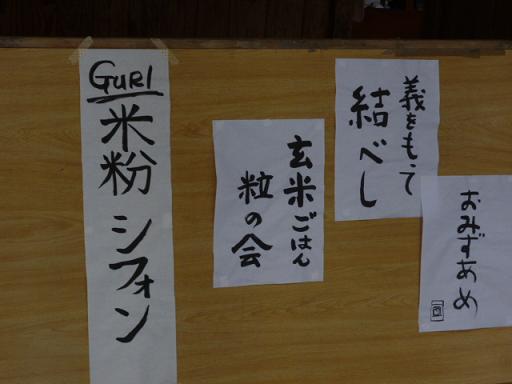 GURI
米粉 シフォン
玄米ごはん
粒の会
義をもって
結べし
おみずあめ